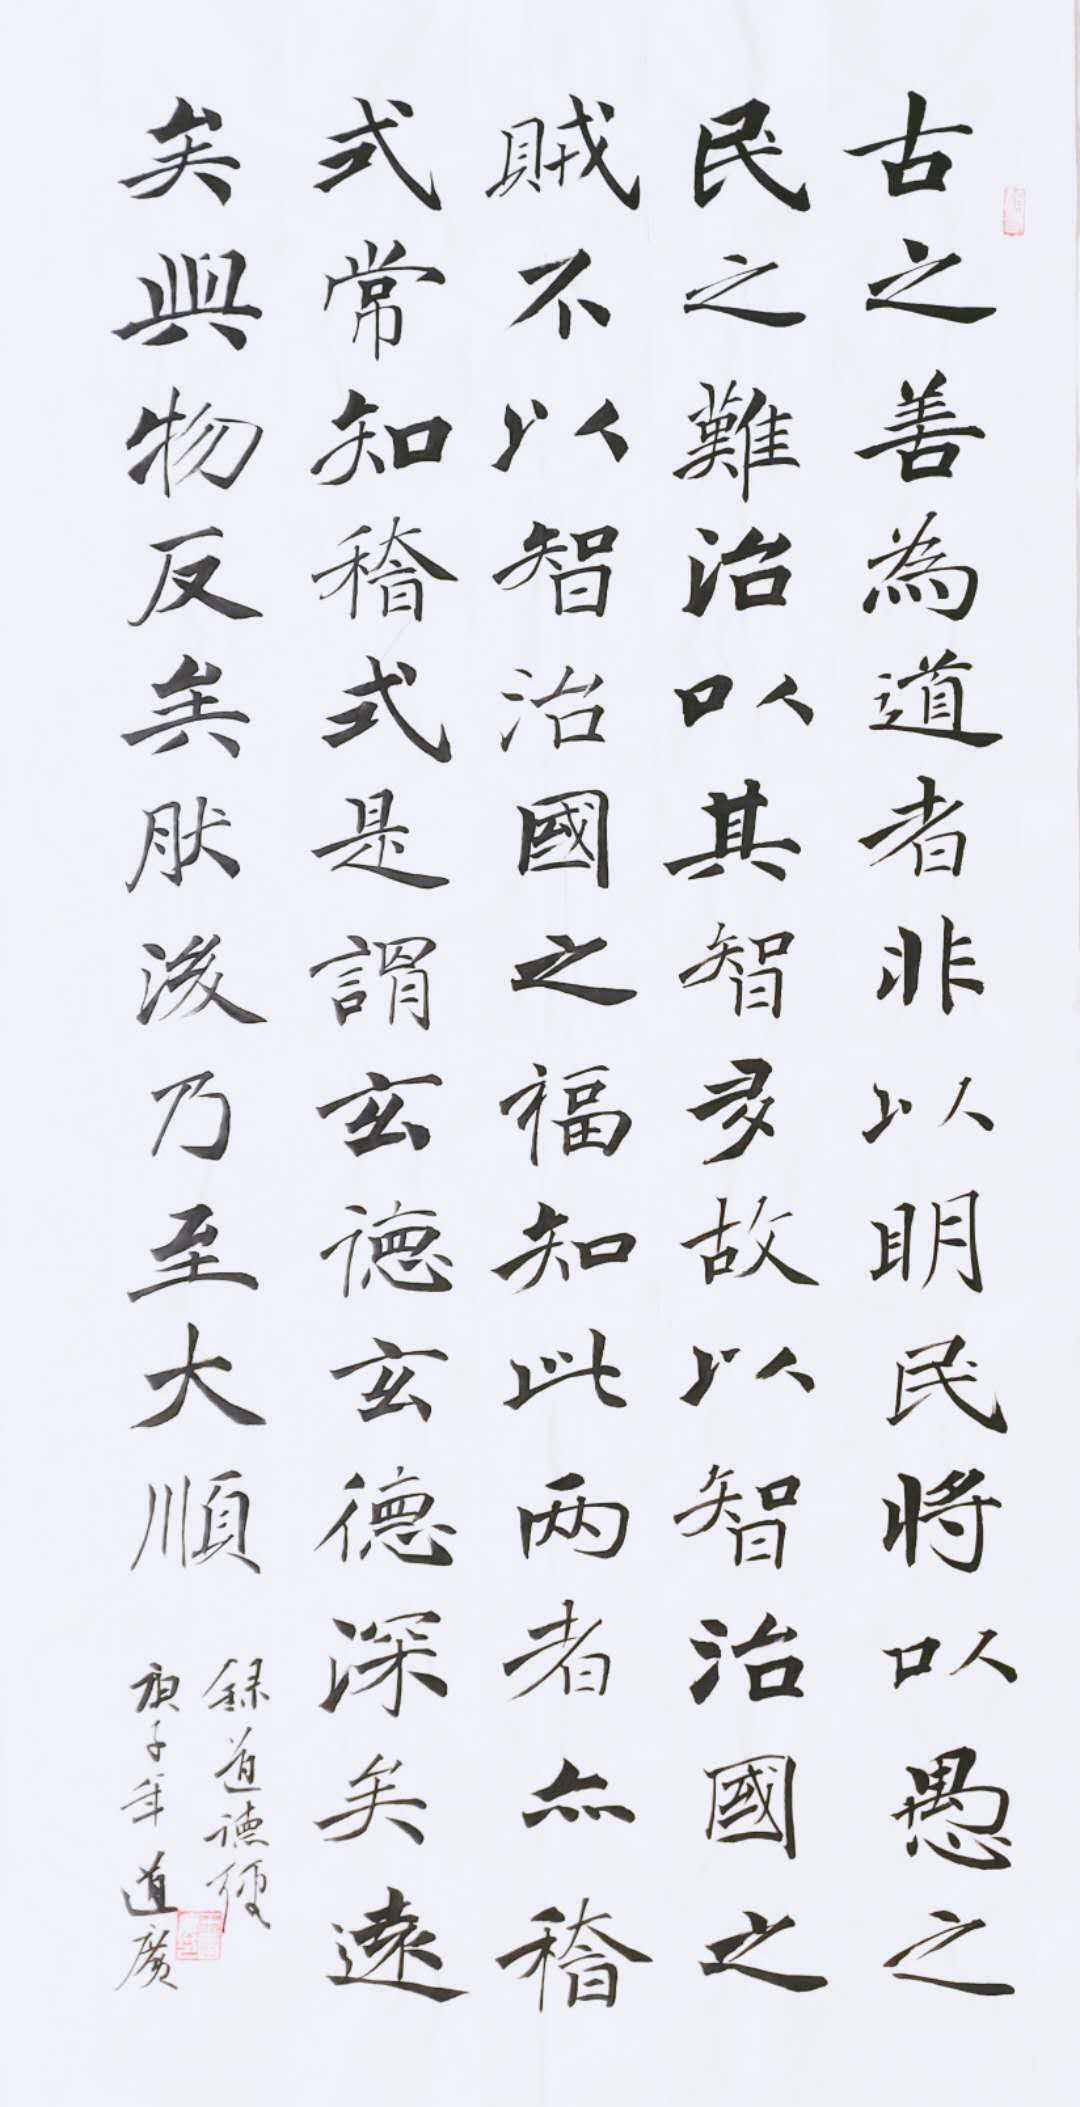 古之善為道者非以明民將以愚之
民之難治以其智多故以智治國之
賊不以智治國之福知此两者亦稽
式常知稽式是謂玄德玄德深矣遠
矣與物反矣肰後乃至大順
録道德經
庚子年道廣